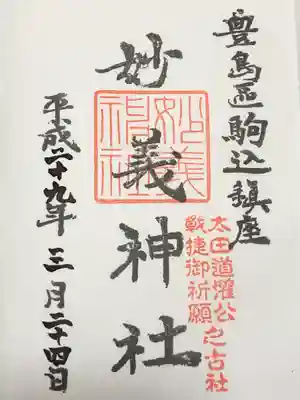 豊島區駒込鎮座
太田道灌公之古社
戰捷御祈願
妙義神社
妙義神社
平成二十九年三月二十四日